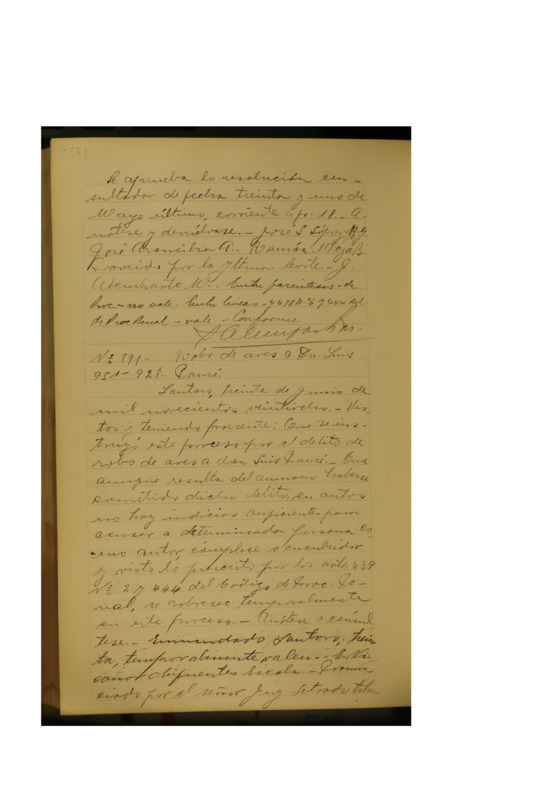 Se aprueba la resolución con-
sultada de fecha treinta y uno de
Mayo último, corriente a fs. 18.- A-
nótese y devuélvase.- José S. López
José Arancibia A.- Ramón Vega B.
Proveido por la Iltma Corte.- J.
Almirante M.- Entre paréntesis - de
Proc.- no vale. Entre líneas -
de Proc Penal - vale - Conforme
Nº 891- Robo de aves a Dn. Luis
951-928.
Santoro, treinta de junio de
mil novecientos veintiocho.- Vis-
tos y teniendo presente: Que se ins-
truyó este proceso por el delito de
robo de aves a don Luis .- Que
aunque resulta del sumario haberse
cometido dicho delito, en autos
no hay indicios suficientes para
acusar a determinada persona co-
mo autor cómplice o encubridor
y visto lo prescrito por los arts. 439
Nº 2 y 444 del Código de Proc. Pe-
nal, se sobresee temporalmente
en este proceso.- Anótese y consúl-
tese.- Enmendado Santoro, trein-
ta, temporalmente, valen.- E. Vi-
Cifuentes Escala.- Pronun-
ciado por el señor Juez Letrado titu-